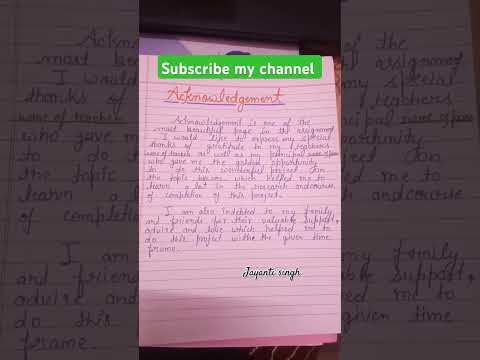 Subscribe my channel
Acknowledgement
Acknowledgement is one of the
most beautiful page in the assignment
I would like to express my special
thanks of gratitude to my teachers
name of teacher as well as my principal name of prin
who gave me the golden opportunity
to do this wonderful project on
the topic which helped me to
learn a lot in the research and course
of completion of this project.
I am also indebted to my family
and friends for their valuable support,
advice and love which helped me to
do this project within the given time
frame.
Jayanti singh